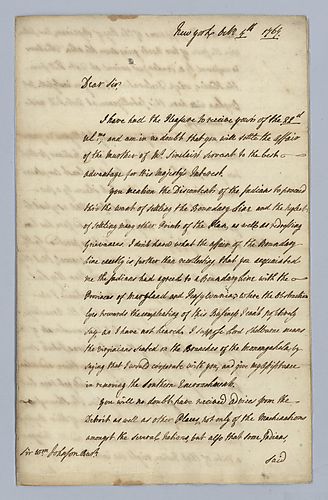 New york Octr 4th 1767
Dear Sir,
I have had the Pleasure to receive yours of the
ulto, and am in no doubt that you will settle the affair
of the murther of Mr Sinclairs Servant to the best
advantage for his Majesty's Interest.
You mention the Discontents of the Indians to proceed
thro' the want of settling the Boundary Line and the neglect
of settling many other Points of the Plan, as well as redressing
Grievances. I don't know what the affair of the Boundary
Line exactly is further than recollecting that you acquainted
me the Indians had agreed to a Boundary Line with the
Provinces of Maryland and Pensylvania; where the Obstruction
lyes towards the compleating of this Business I can't positively
say as I have not heard. I suppose Lord Shelburne means
the Virginians seated on the Branches of the Monongahela, by
saying that I would cooperate with you, and give my assistance
in removing the Southern Encroachments.
You will no doubt have received advices from the
Detroit as well as other Places, not only of the Machinations
amongst the several Nations, but also that some Indians,
Sir Wm Johnson Bart.
said